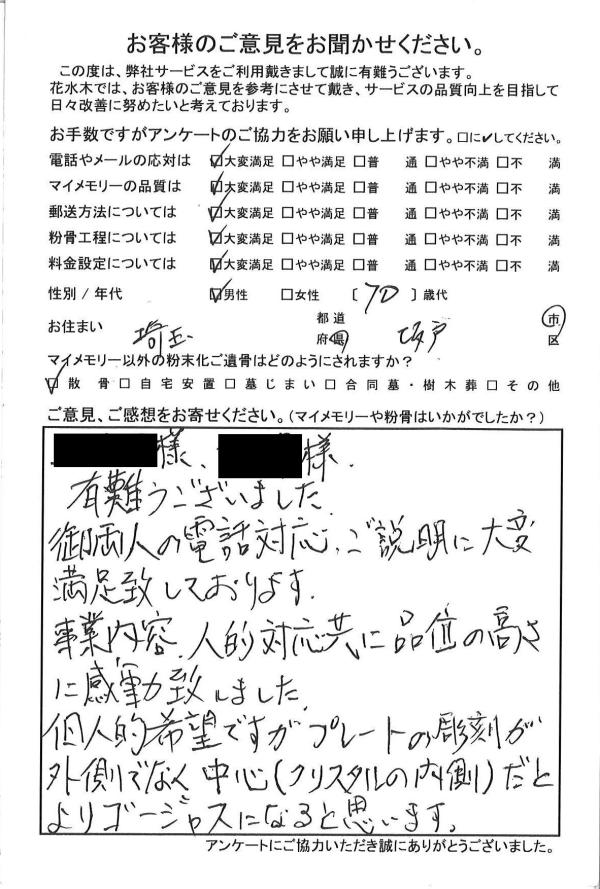 お客様のご意見をお聞かせください。
この度は、弊社サービスをご利用戴きまして誠に有難うございます。
花水木では、お客様のご意見を参考にさせて戴き、サービスの品質向上を目指して
日々改善に努めたいと考えております。
お手数ですがアンケートのご協力をお願い申し上げます。□に✓してください。
電話やメールの応対は ☑大変満足 □やや満足 □普 通 □やや不満 □不 満
マイメモリーの品質は ☑大変満足 □やや満足 □普 通 □やや不満 □不 満
郵送方法については ☑大変満足 □やや満足 □普 通 □やや不満 □不 満
粉骨工程については ☑大変満足 □やや満足 □普 通 □やや不満 □不 満
料金設定については ☑大変満足 □やや満足 □普 通 □やや不満 □不 満
性別 / 年代 ☑男性 □女性 〔 70 〕歳代
お住まい 埼玉 都道府県 坂戸 市区
マイメモリー以外の粉末化ご遺骨はどのようにされますか？
☑散 骨 □自宅安置 □墓じまい □合同墓・樹木葬 □その他
ご意見、ご感想をお寄せください。(マイメモリーや粉骨はいかがでしたか？)
様、 様.
有難うございました.
御両人の電話対応、ご説明に大変
満足致しております.
事業内容、人的対応共に品位の高さ
に感動致しました.
個人的希望ですが プレートの彫刻が
外側でなく 中心(クリスタルの内側)だと
よりゴージャスになると思います。
アンケートにご協力いただき誠にありがとうございました。